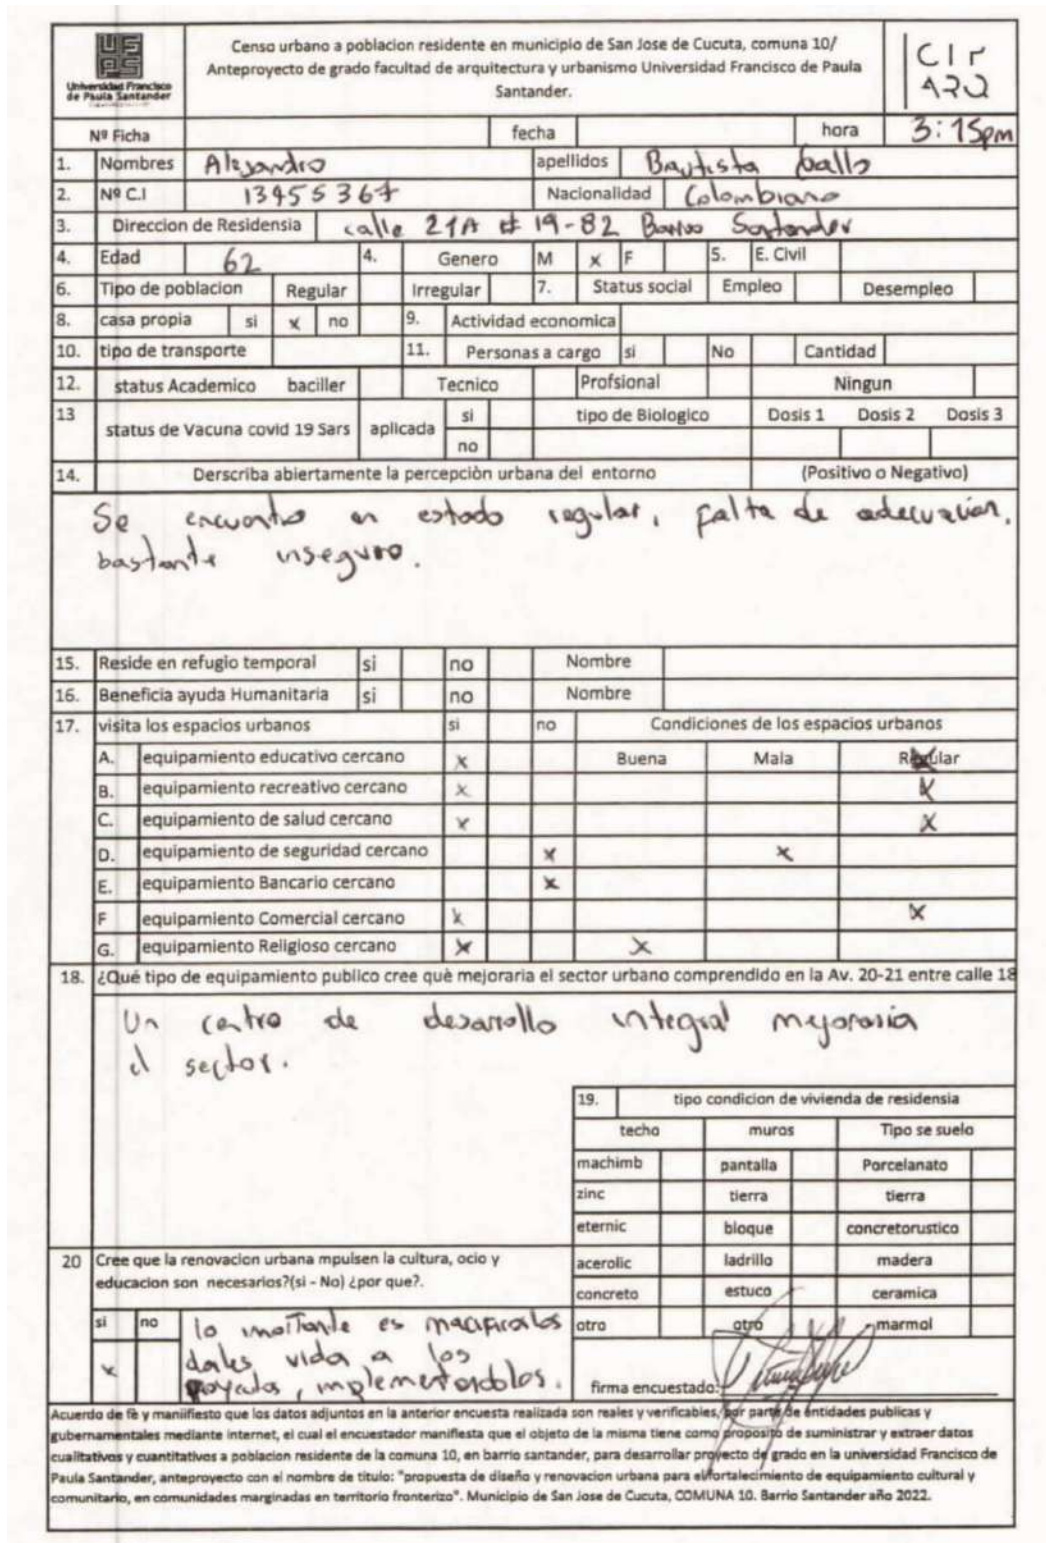 Universidad Francisco
de Paula Santander
Censo urbano a poblacion residente en municipio de San Jose de Cucuta, comuna 10/
Anteproyecto de grado facultad de arquitectura y urbanismo Universidad Francisco de Paula
Santander.
Nº Ficha fecha hora 3:15pm
1. Nombres Alejandro apellidos Bautista Gallo
2. Nº C.I 13455367 Nacionalidad Colombiano
3. Direccion de Residencia calle 21A # 19-82 Barrio Santander
4. Edad 62 4. Genero M x F 5. E. Civil
6. Tipo de poblacion Regular Irregular 7. Status social Empleo Desempleo
8. casa propia si x no 9. Actividad economica
10. tipo de transporte 11. Personas a cargo si No Cantidad
12. status Academico baciller Tecnico Profsional Ningun
13 status de Vacuna covid 19 Sars aplicada si no tipo de Biologico Dosis 1 Dosis 2 Dosis 3
14. Derscriba abiertamente la percepciòn urbana del entorno (Positivo o Negativo)
Se encuentra en estado regular, falta de adecuacion,
bastante inseguro.
15. Reside en refugio temporal si no Nombre
16. Beneficia ayuda Humanitaria si no Nombre
17. visita los espacios urbanos si no Condiciones de los espacios urbanos
A. equipamiento educativo cercano x Buena Mala Regular
B. equipamiento recreativo cercano x x
C. equipamiento de salud cercano x x
D. equipamiento de seguridad cercano x x
E. equipamiento Bancario cercano x
F equipamiento Comercial cercano x x
G. equipamiento Religioso cercano x x
18. ¿Qué tipo de equipamiento publico cree què mejoraria el sector urbano comprendido en la Av. 20-21 entre calle 18
Un centro de desarrollo integral mejoraria
el sector.
19. tipo condicion de vivienda de residensia
techo muros Tipo se suelo
machimb pantalla Porcelanato
zinc tierra tierra
eternic bloque concretorustico
acerolic ladrillo madera
concreto estuco ceramica
otro otro marmol
20 Cree que la renovacion urbana mpulsen la cultura, ocio y
educacion son necesarios?(si - No) ¿por que?.
si no lo
x es
dales vida a los
, implementandolos.
firma encuestado:
Acuerdo de fè y maniifiesto que los datos adjuntos en la anterior encuesta realizada son reales y verificables, por parte de entidades publicas y
gubernamentales mediante internet, el cual el encuestador manifiesta que el objeto de la misma tiene como proposito de suministrar y extraer datos
cualitativos y cuantitativos a poblacion residente de la comuna 10, en barrio santander, para desarrollar proyecto de grado en la universidad Francisco de
Paula Santander, anteproyecto con el nombre de titulo: "propuesta de diseño y renovacion urbana para el fortalecimiento de equipamiento cultural y
comunitario, en comunidades marginadas en territorio fronterizo". Municipio de San Jose de Cucuta, COMUNA 10. Barrio Santander año 2022.